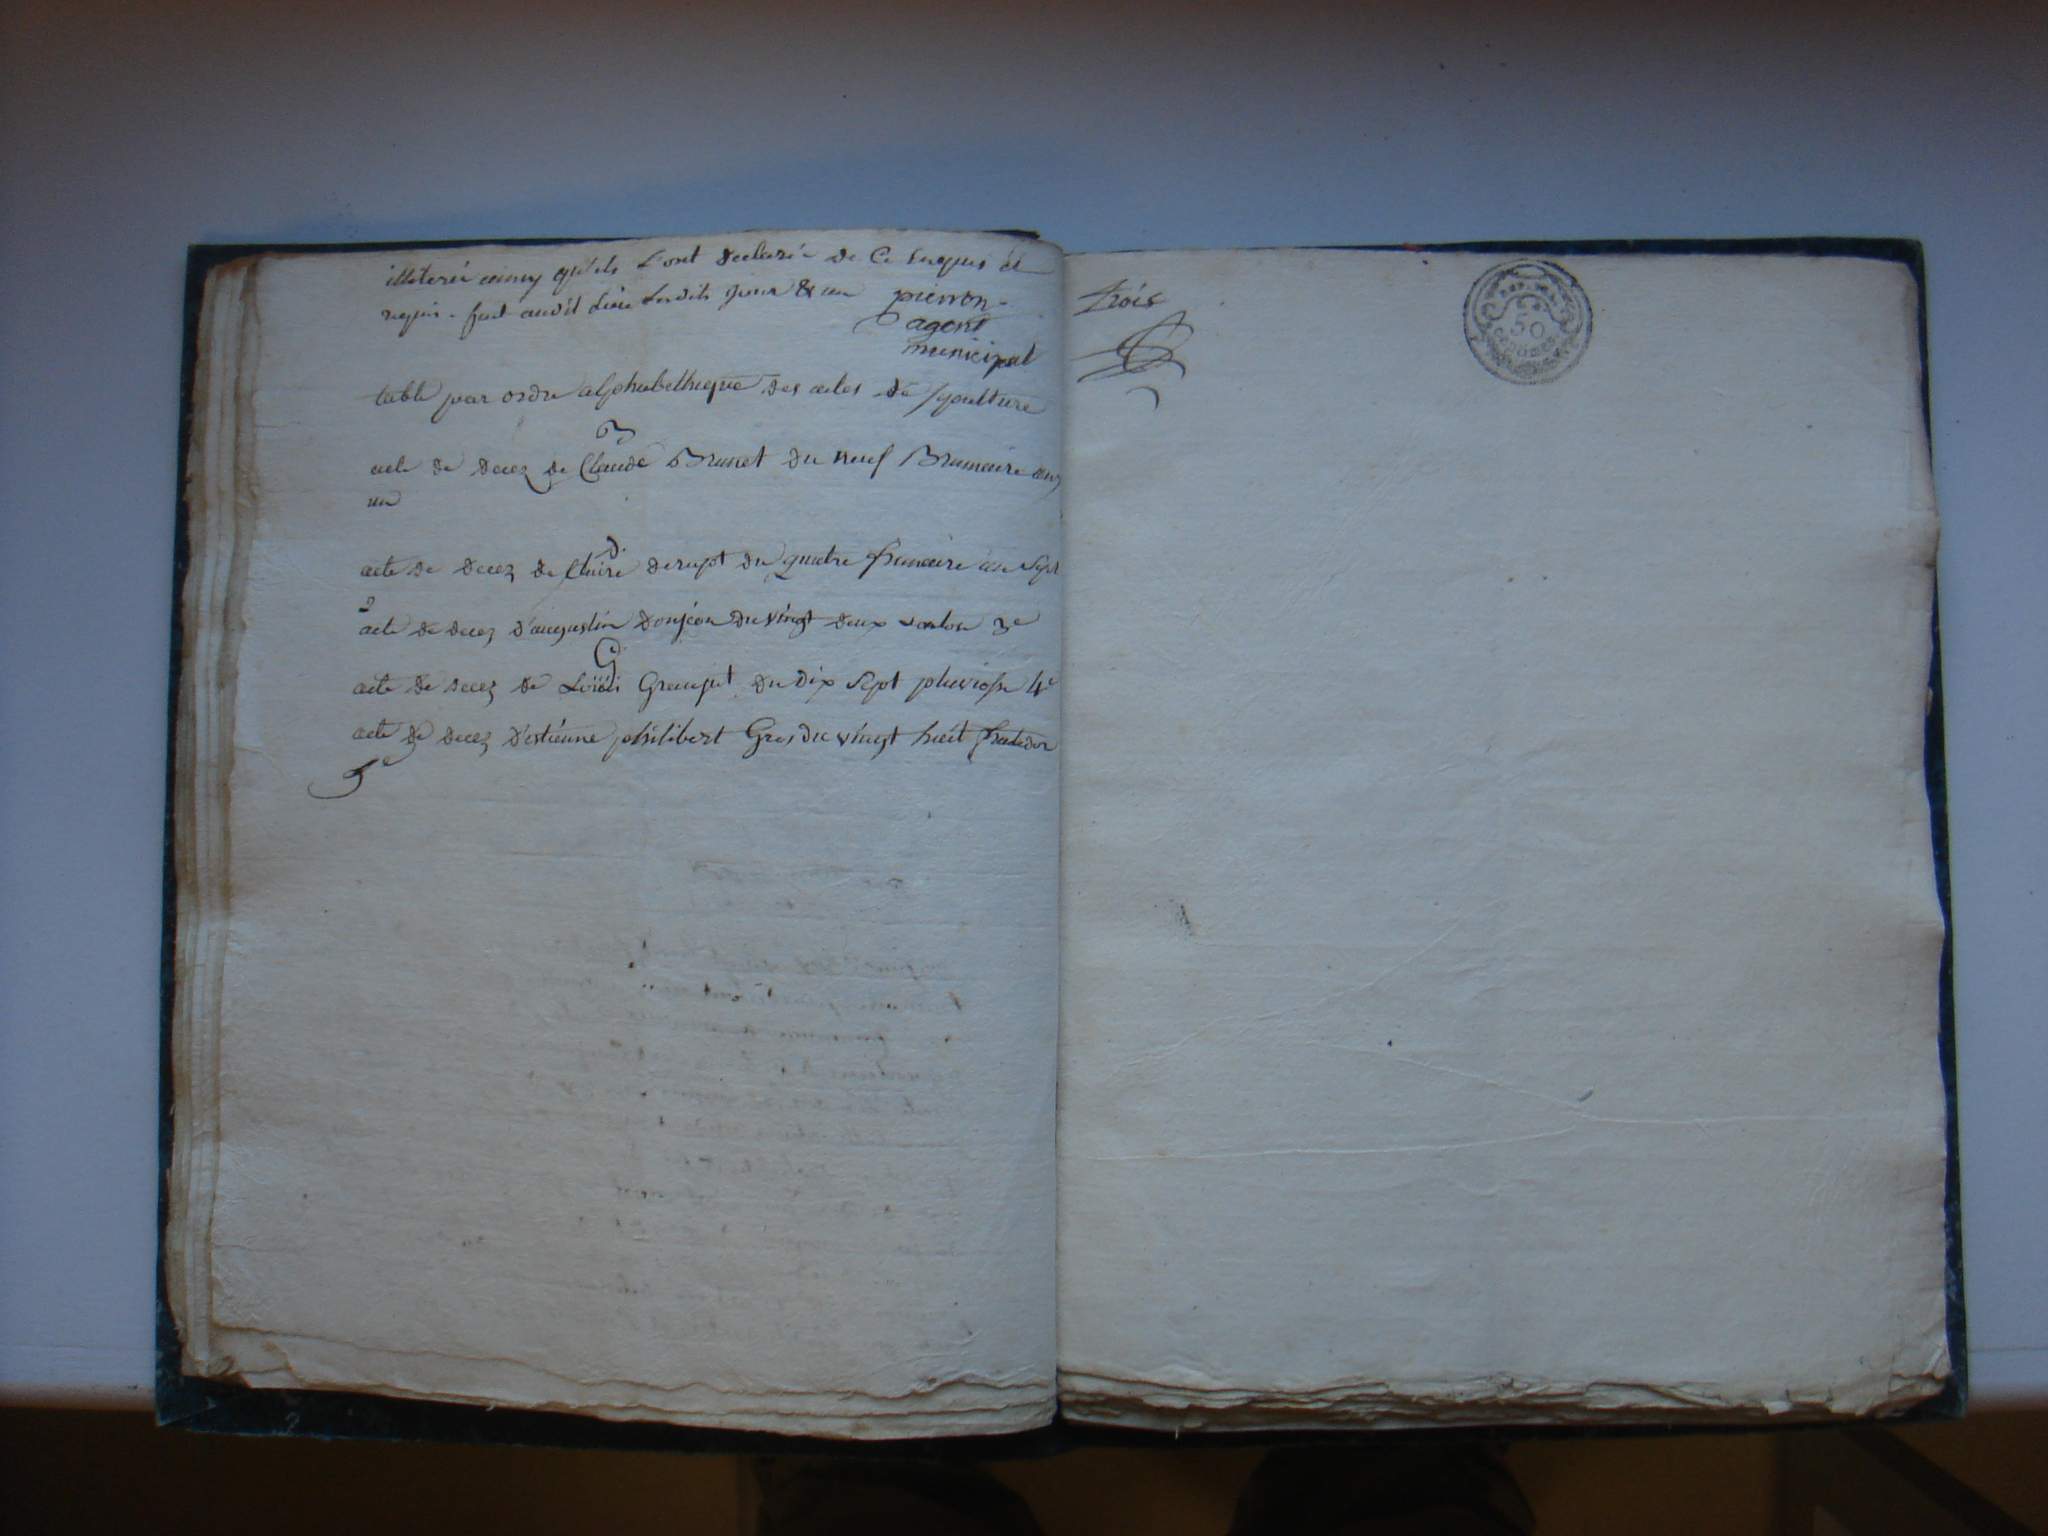 illiteré ainsy qu'ils l'ont declaré de ce enquis et
requis. fait audit lieu lesdits jour & an pierron
agent
municipal
table par ordre alphabethique des actes de sepulture
B
acte de decez de Claude Brunet du neuf Brumaire an
un
D
acte de decez de Claire derupt du quatre frimaire an sept
2
acte de decez d'augustin donjeon du vingt deux ventose 3e
G
acte de decez de Louis Granjut du dix sept pluviose 4e
acte de decez d'estienne philibert Gros du vingt huit
trois
REP. FRA.
50
CENTIMES